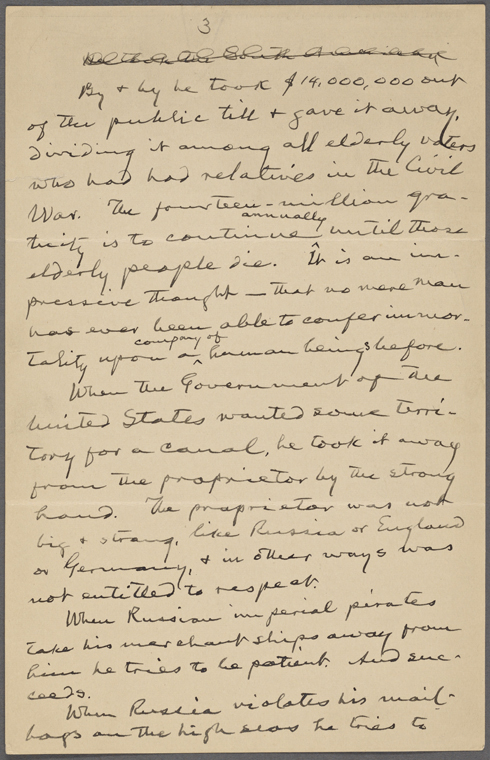 3
By & by he took $14,000,000 out
of the public till & gave it away,
dividing it among all elderly voters
who had had relatives in the Civil
War. The fourteen-million gra-
annually
tuity is to continue until those
elderly people die. It is an im-
pressive thought — that no mere man
has ever been able to confer immor-
company of
tality upon a human beings before.
When the Government of the
United States wanted some terri-
tory for a canal, he took it away
from the proprietor by the strong
hand. The proprietor was not
big & strong, like Russia or England
or Germany, & in other ways was
not entitled to respect.
When Russian imperial pirates
take his merchant ships away from
him he tries to be patient. And suc-
ceeds.
When Russia violates his mail-
bags on the high seas he tries to